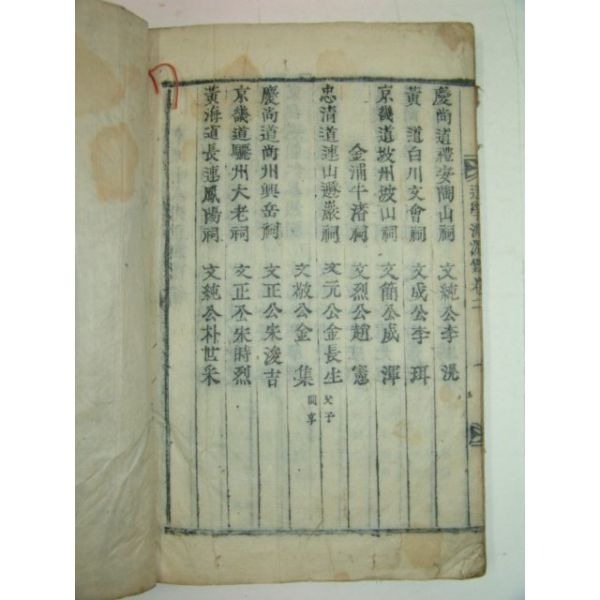 慶尚道禮安陶山祠 文純公李滉
黃海道白川文會祠 文成公李珥
京畿道坡州坡山祠 文簡公成渾
金浦牛渚祠 文烈公趙憲
忠清道連山遯巖祠 文元公金長生 父子
文敬公金集 同享
慶尚道尚州興岳祠 文正公宋浚吉
京畿道驪州大老祠 文正公宋時烈
黃海道長連鳳陽祠 文純公朴世采
道學淵源錄卷二